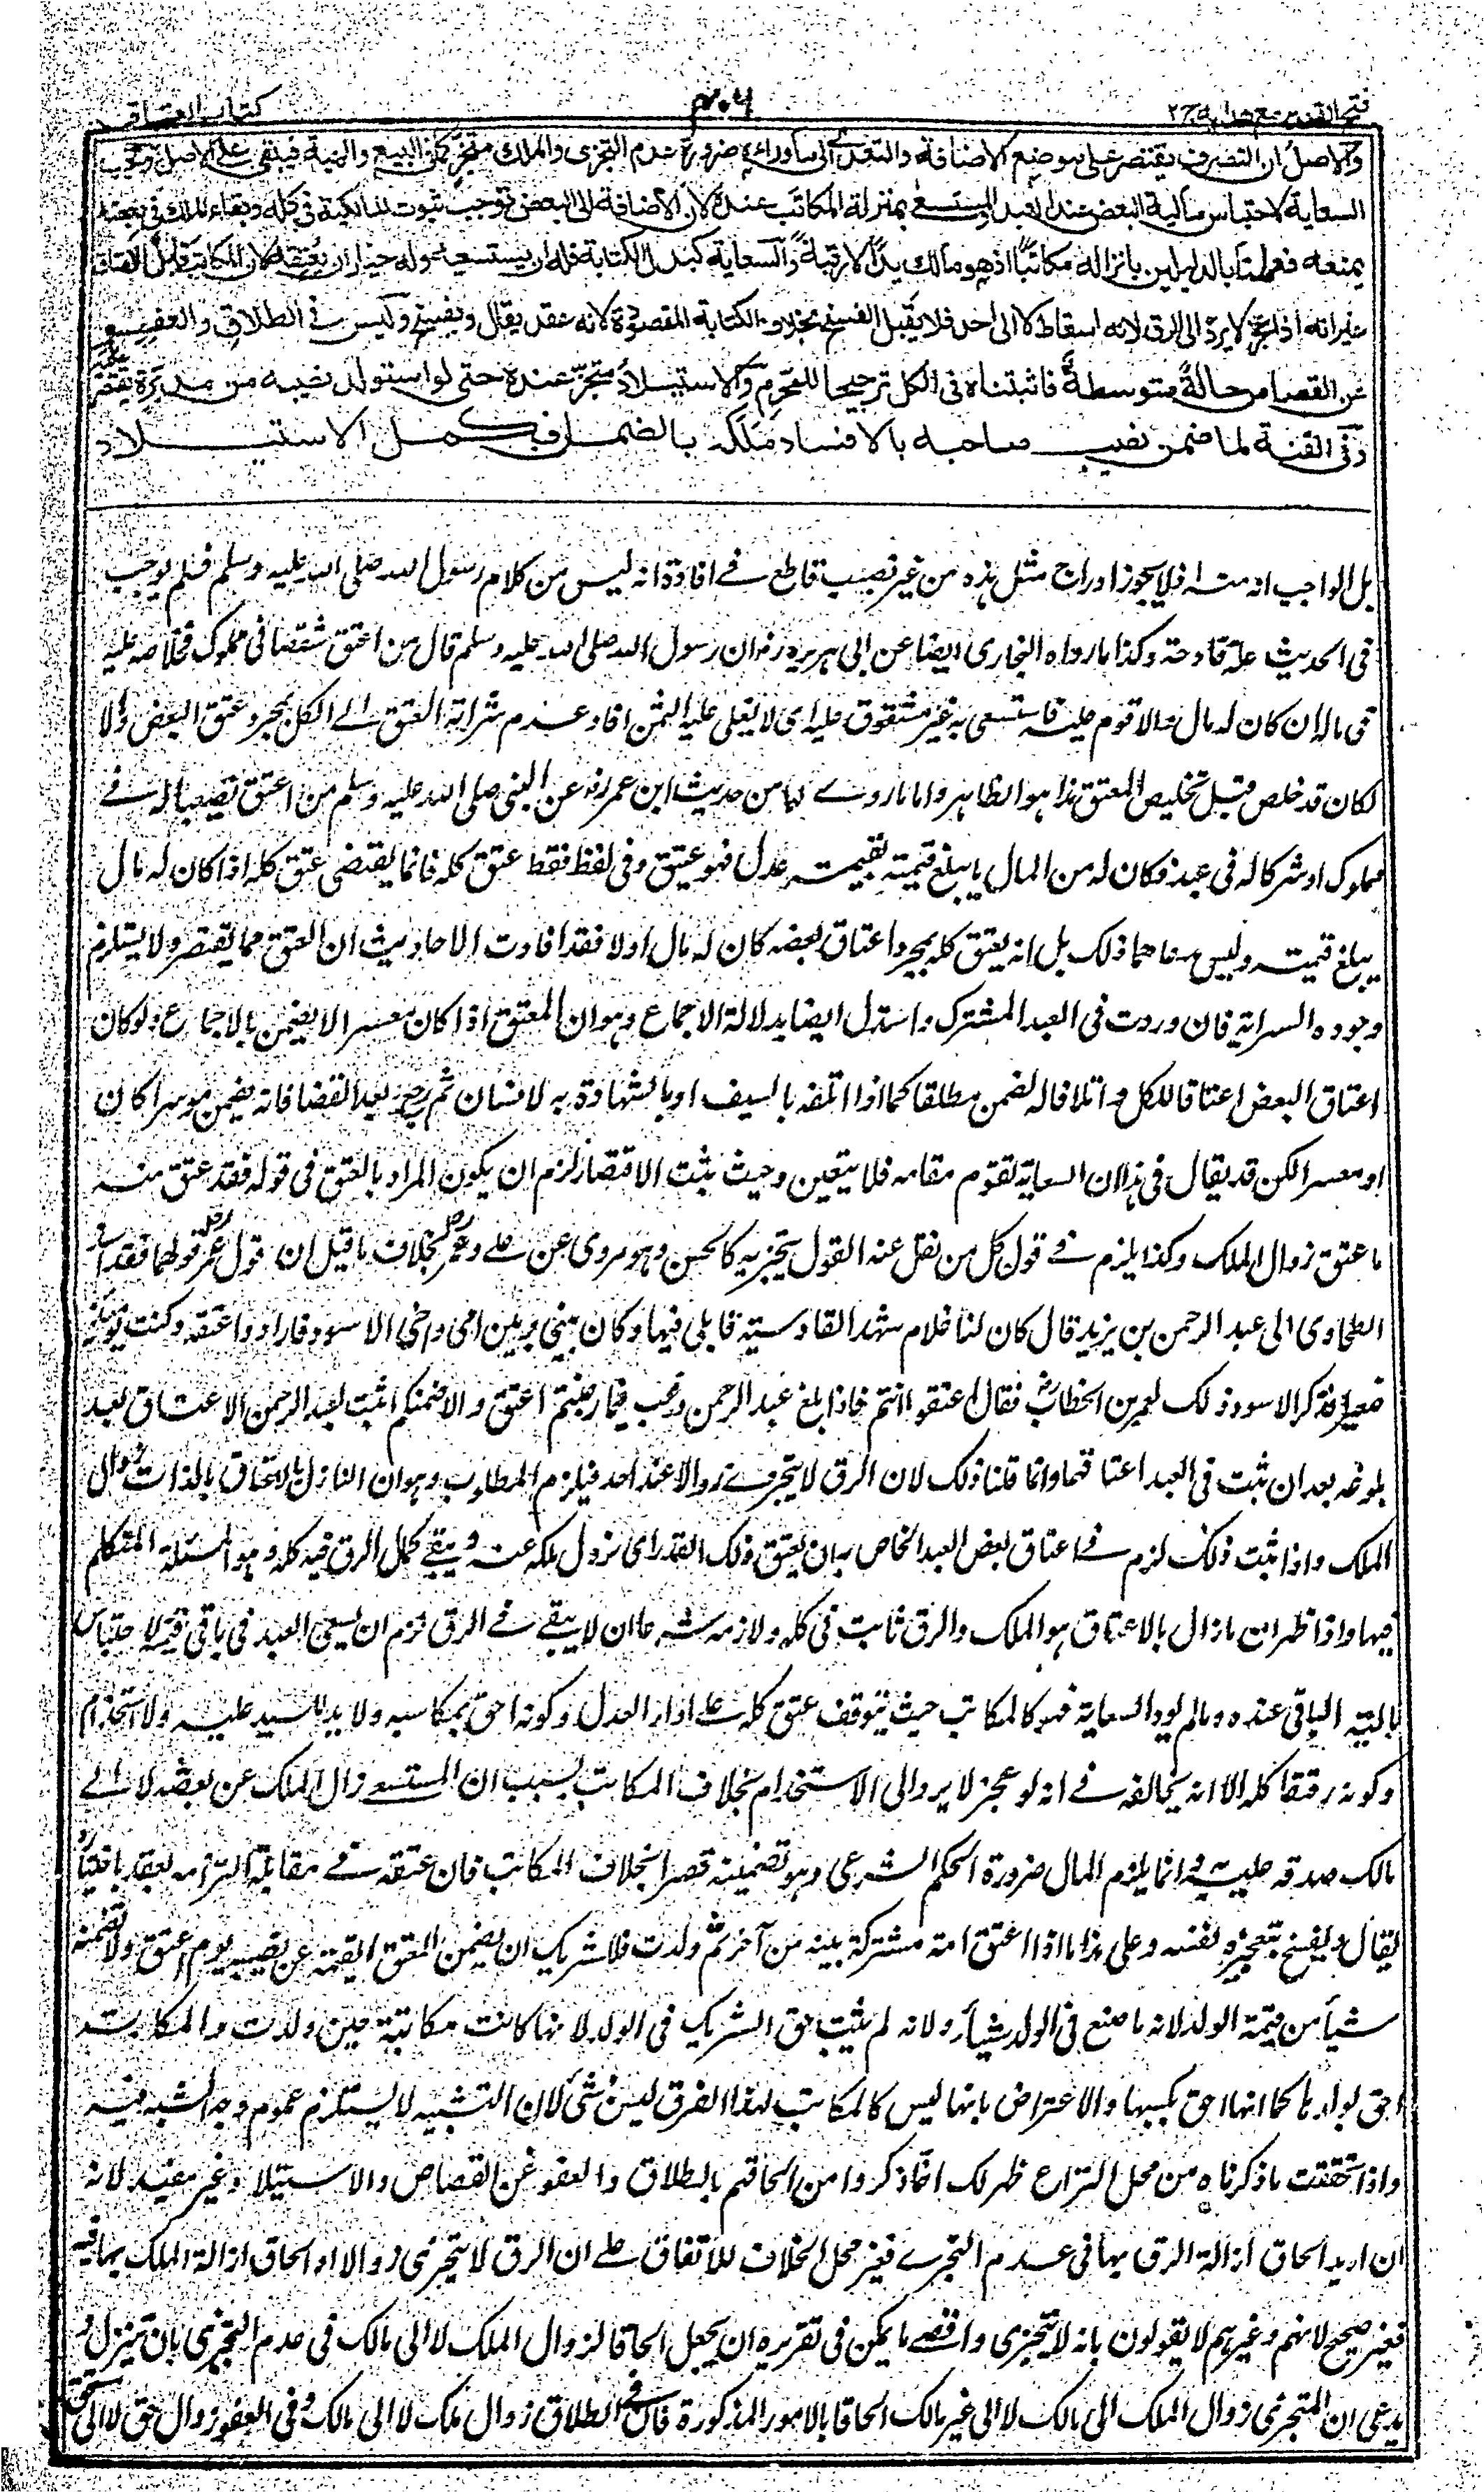 فتح القدير مع هدايه ج ٢
٢٠٦
كتاب الاعتاق
والاصل ان التصرف يقتصر على موضع الاضافة والتعدي الى ما وراءه ضرورة عدم التجزي والملك متجز كما في البيع والهبة فيبقى على الاصل وتجب
السعاية لاحتباس مالية البعض عند العبد والمستسعى بمنزلة المكاتب عنده لان الاضافة الى البعض توجب ثبوت المالكية في كله وبقاء الملك في بعضه
يمنعه فعملنا بالدليلين بانزاله مكاتبا اذ هو مالك يدا لا رقبة والسعاية كبدل الكتابة فله ان يستسعيه وله خيار ان يعتقه لان المكاتب قابل للاعتاق
غير انه اذا عجز لا يرد الى الرق لانه اسقاط لا الى احد فلا يقبل الفسخ بخلاف الكتابة المقصودة لانه عقد يقال ويفسخ وليس في الطلاق والعفو
عن القصاص حالة متوسطة فاثبتناه في الكل ترجيحا للمحرم والاستيلاد متجز عنده حتى لو استولد نصيبه من مدبرة يقتصر عليه
وفي القنة لما ضمن نصيب صاحبه بالافساد ملكه بالضمان فيكمل الاستيلاد
بل الواجب انه منه اذ لا يجوز ادراج مثل هذه من غير نصب قاطع في افادة انه ليس من كلام رسول الله صلى الله عليه وسلم فلم يوجب
في الحديث علة قادحة وكذا ما رواه البخاري ايضا عن ابي هريرة رض ان رسول الله صلى الله عليه وسلم قال من اعتق شقصا في مملوك فخلاصه عليه
في ماله ان كان له مال والا قوم عليه فاستسعي به غير مشقوق عليه اي لا يغلى عليه الثمن افاد عدم سراية العتق الى الكل بمجرد عتق البعض والا
لكان قد خلص قبل تخليص المعتق هذا هو الظاهر واما ما روي لهما من حديث ابن عمر رض عن النبي صلى الله عليه وسلم من اعتق نصيبا له في
مملوك او شركا له في عبد فكان له من المال ما يبلغ قيمته بقيمة عدل فهو عتيق وفي لفظ فقط عتق كله فانما يقتضي عتق كله اذا كان له مال
يبلغ قيمته وليس مدعاهما ذلك بل انه يعتق كله بمجرد اعتاق بعضه كان له مال او لا فقد افادت الاحاديث ان العتق مما يقتصر ولا يستلزم
وجوده السراية فان وردت في العبد المشترك واستدل ايضا بدلالة الاجماع وهو ان المعتق اذا كان معسرا لا يضمن بالاجماع ولو كان
اعتاق البعض اعتاقا للكل واتلافا له لضمن مطلقا كما اذا اتلفه بالسيف او بالشهادة به لانسان ثم رجع بعد القضا فانه يضمن موسرا كان
او معسرا لكن قد يقال في هذا ان السعاية تقوم مقامه فلا يتعين وحيث ثبت الاقتصار لزم ان يكون المراد بالعتق في قوله فقد عتق منه
ما عتق زوال الملك وكذا يلزم في قول كل من نقل عنه القول بتجزيه كالحسن وهو مروي عن علي وعمر رض بخلاف ما قيل ان قول عمر رض كقولهما فقد اسند
الطحاوي الى عبد الرحمن بن يزيد قال كان لنا غلام شهد القادسية فابلى فيها وكان بيني وبين امي واخي الاسود فارادوا عتقه وكنت يومئذ
صغيرا فذكر الاسود ذلك لعمر بن الخطاب رض فقال اعتقوا انتم فاذا بلغ عبد الرحمن ورغب فيما رغبتم اعتق والا ضمنكم اثبت لعبد الرحمن الاعتاق بعد
بلوغه بعد ان ثبت في العبد اعتاقهما وانما قلنا ذلك لان الرق لا يتجزى زوالا عند احد فيلزم المطلوب وهو ان النازل بالاعتاق بالذات زوال
الملك واذا ثبت ذلك لزم في اعتاق بعض العبد الخاص به ان يعتق ذلك القدر اي يزول ملكه عنه ويبقى كمال الرق فيه كله وهو المسئلة المتكلم
فيها واذا ظهر ان ما زال بالاعتاق هو الملك والرق ثابت في كله ولازمه شرعا ان لا يبقى في الرق لزم ان يسعى العبد في باقي قيمته لاحتباس
مالية الباقي عنده وما لم يود السعاية فهو كالمكاتب حيث يتوقف عتق كله على اداء البدل وكونه احق بمكاسبه ولا يد للسيد عليه ولا استخدام
وكونه رقيقا كله الا انه يخالفه في انه لو عجز لا يرد الى الاستخدام بخلاف المكاتب بسبب ان المستسعى زال الملك عن بعضه لا الى
مالك صدقة عليه به وانما يلزم المال ضرورة الحكم الشرعي وهو تضمينه قصرا بخلاف المكاتب فان عتقه في مقابلة التزامه بعقد باختياره
يقال ويفسخ بتعجيزه نفسه وعلى هذا ما اذا اعتق امة مشتركة بينه من آخر ثم ولدت فللشريك ان يضمن المعتق القيمة عن نصيبه يوم اعتق ولا يضمنه
شيأ من قيمة الولد لانه ما صنع في الولد شيأ ولانه لم يثبت حق الشريك في الولد لانها كانت مكاتبة حين ولدت والمكاتبة
احق بولدها كما انها احق بكسبها والاعتراض بانها ليس كالمكاتب لهذا الفرق ليس بشئ لان التشبيه لا يستلزم عموم وجه الشبه فيه
واذا تحققت ما ذكرناه من محل النزاع ظهر لك ان ما ذكروا من الحاقهم بالطلاق والعفو عن القصاص والاستيلاد غير مفيد لانه
ان اريد الحاق ازالة الرق بها في عدم التجزي فغير محل الخلاف للاتفاق على ان الرق لا يتجزى زوالا او الحاق ازالة الملك بها فيه
فغير صحيح لانهم وغيرهم لا يقولون بانه لا يتجزى واقصى ما يمكن في تقريره ان يجعل الحاقا لزوال الملك لا الى مالك في عدم التجزي بان يتنزل و
يدعى ان المتجزي زوال الملك الى مالك لا الى غير مالك الحاقا بالامور المذكورة فان في الطلاق زوال ملك لا الى مالك وفي العفو زوال حق لا الى مستحق